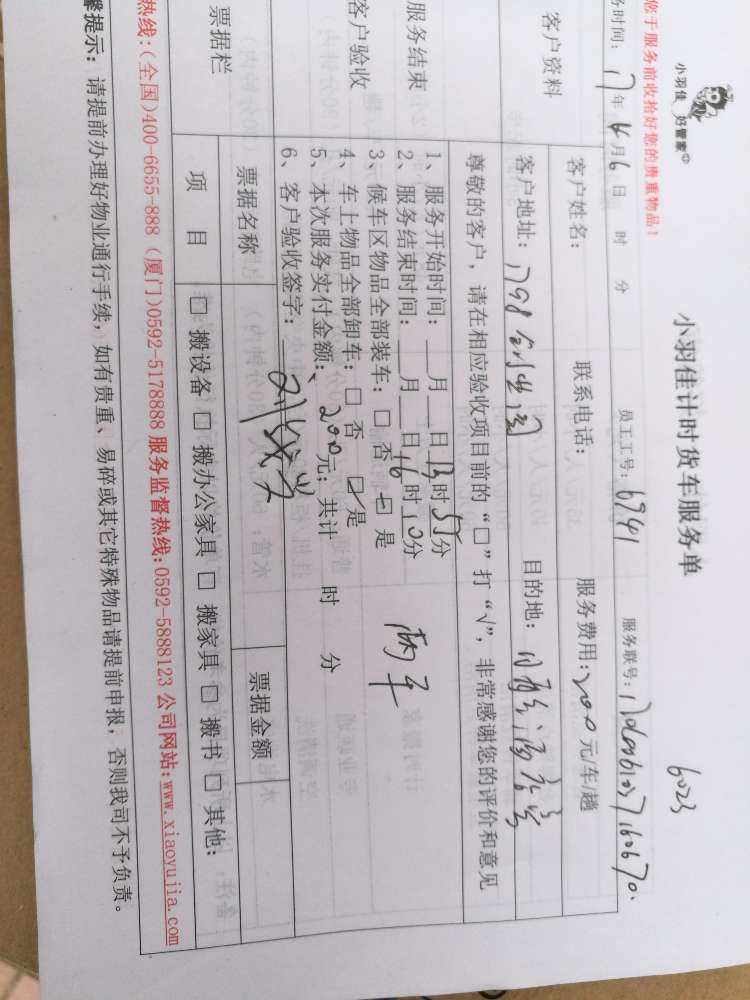 6023
小羽佳计时货车服务单
小羽佳 好管家
您于服务前收拾好您的贵重物品!
时间: 17年 6月6日 时 分 员工工号: 6941 服务联号:
客户资料
客户姓名: 联系电话: 服务费用: 200 元/车/趟
客户地址: 1798创业园 目的地:
尊敬的客户,请在相应验收项目前的“□”打“√”,非常感谢您的评价和意见
服务结束
客户验收
1、服务开始时间: 月 日 13时55分
2、服务结束时间: 月 日 16时10分
3、候车区物品全部装车: □ 否 □ 是
4、车上物品全部卸车: □ 否 □ 是
5、本次服务实付金额: 200元; 共计 时 分
6、客户验收签字:
两车
票据栏
票据名称 票据金额
项 目 □ 搬设备 □ 搬办公家具 □ 搬家具 □ 搬书 □ 其他:
热线:(全国)400-6655-888 (厦门)0592-5178888 服务监督热线:0592-5888123 公司网站:www.xiaoyujia.com
馨提示: 请提前办理好物业通行手续,如有贵重、易碎或其它特殊物品请提前申报,否则我司不予负责。